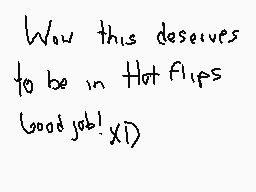 Wow this deserves
to be in Hot Flips
Good job! XD